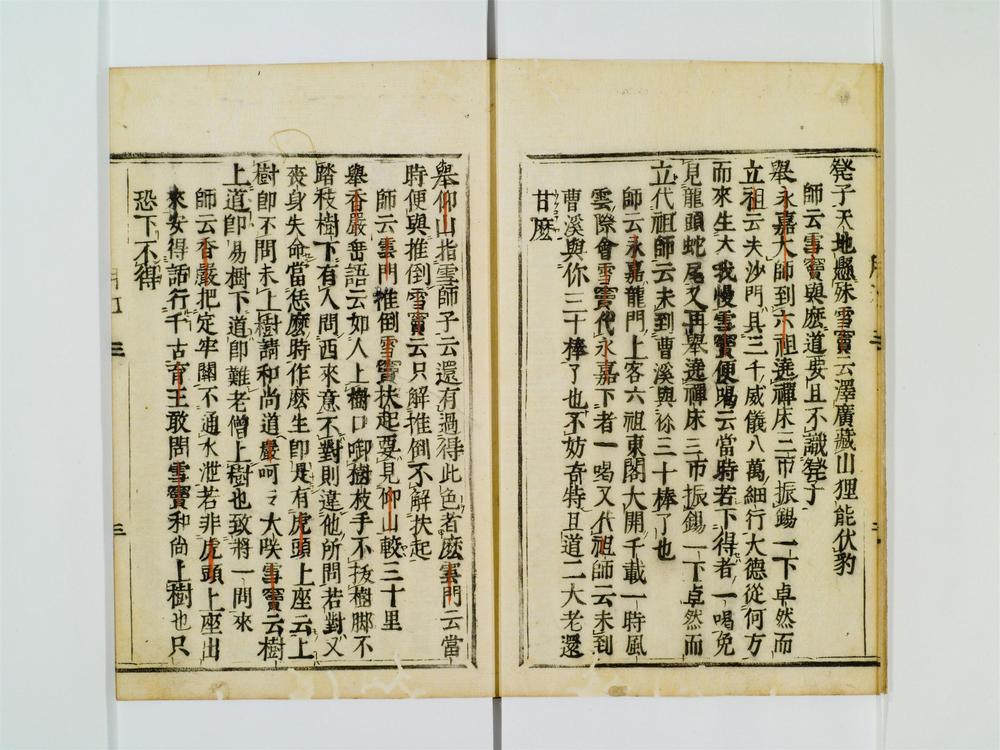 発子天地懸殊雪竇云澤廣藏山狸能伏豹
師云雪竇與麽道要且不識発子
舉永嘉大師到六祖遶禪床三帀振錫一下卓然而
立祖云夫沙門具三千威儀八萬細行大德從何方
而來生大我慢雪竇便喝云當時若下得者一喝免
見龍頭蛇尾又再舉遶禪床三帀振錫一下卓然而
立代祖師云未到曹溪與你三十棒了也
師云永嘉龍門上客六祖東閣大開千載一時風
雲際會雪竇代永嘉下者一喝又代祖師云未到
曹溪與你三十棒了也不妨奇特且道二大老還
甘麽
舉仰山指雪師子云還有過得此色者麽雲門云當
時便與推倒雪竇云只解推倒不解扶起
師云雲門推倒雪竇扶起要見仰山較三十里
舉香嚴垂語云如人上樹口啣樹枝手不扳樹脚不
踏枝樹下有人問西來意不對則違他所問若對又
喪身失命當恁麽時作麽生即是有虎頭上座云上
樹即不問未上樹請和尚道嚴呵〻大咲雪竇云樹
上道即易樹下道即難老僧上樹也致將一問來
師云香嚴把定牢關不通水泄若非虎頭上座出
來安得話行千古育王敢問雪竇和尚上樹也只
恐下不得
三